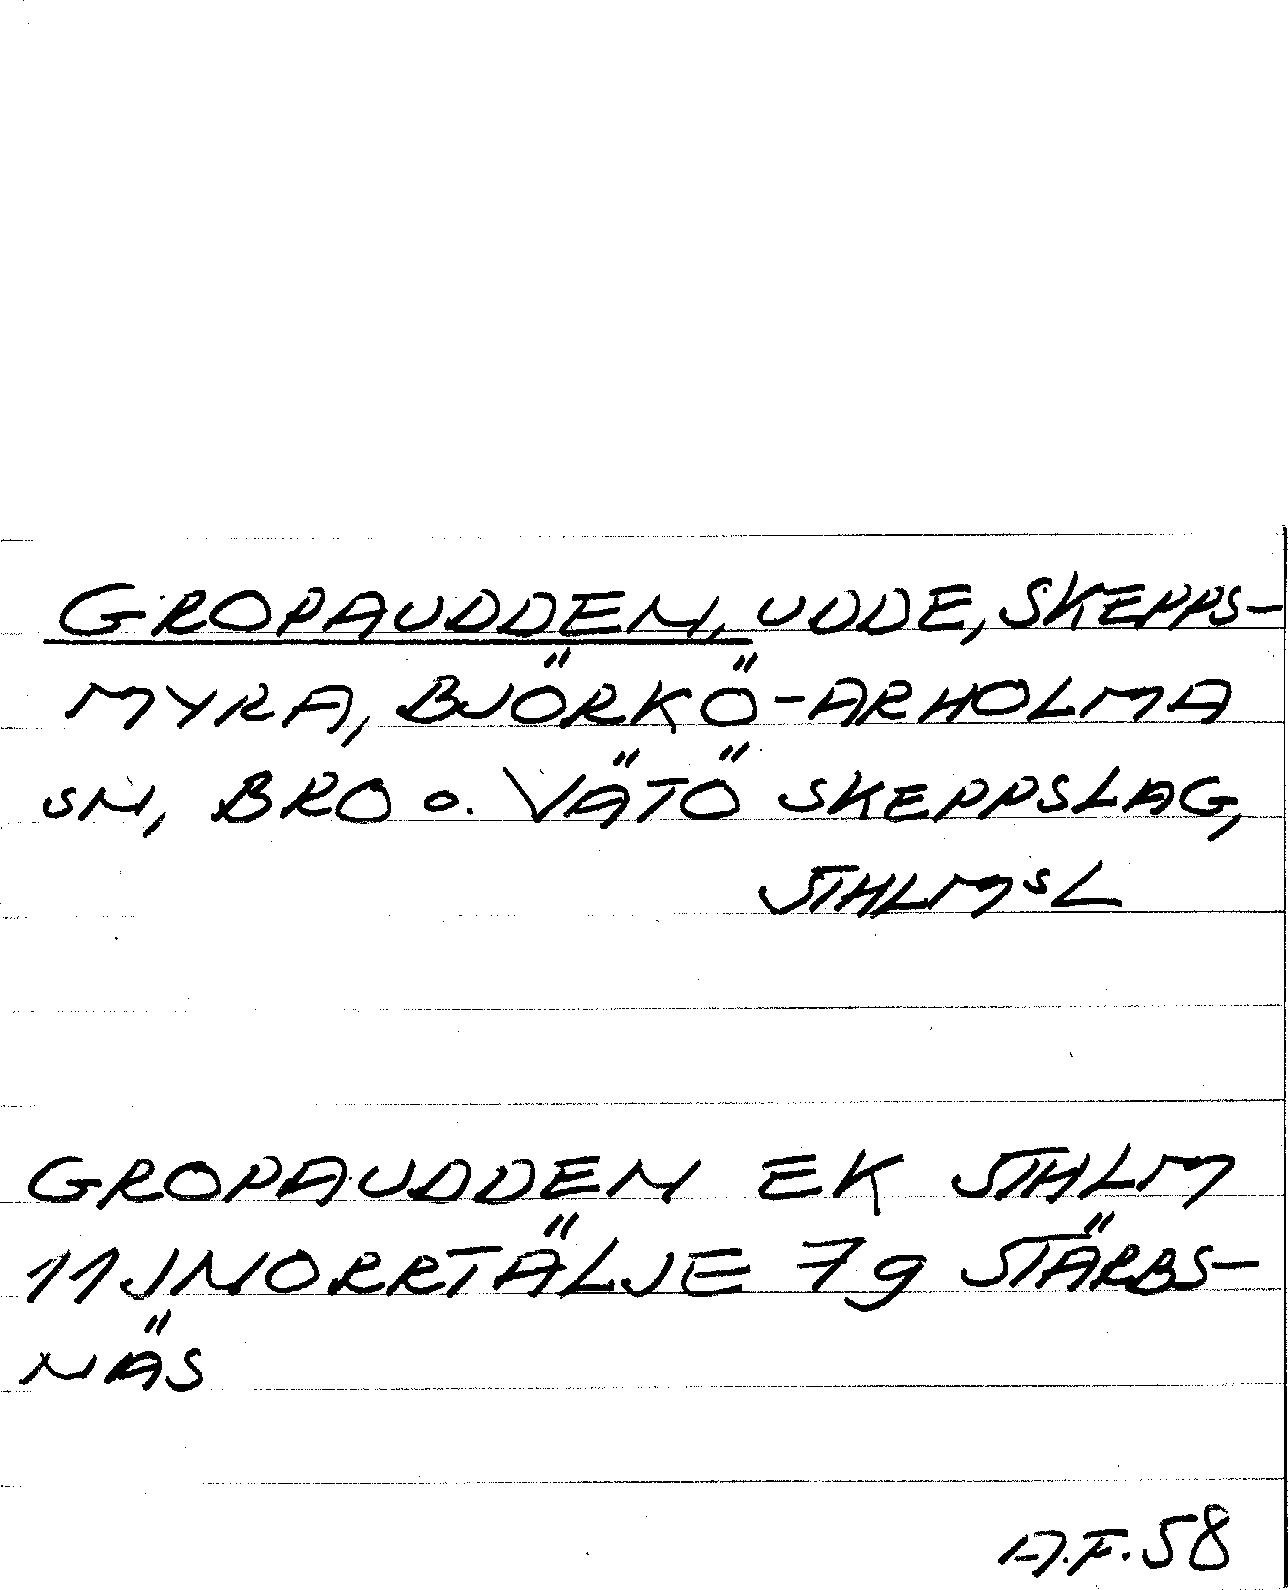 GROPAUDDEN, UDDE, SKEPPS-
MYRA, BJÖRKÖ-ARHOLMA
SN, BRO o. VÄTÖ SKEPPSLAG,
STHLMSL
GROPAUDDEN EK STHLM
11J NORRTÄLJE 7g STÄRBS-
NÄS
A.F. 58